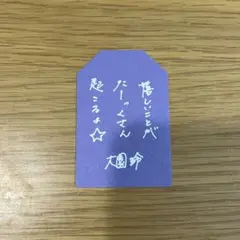 嬉しいことが
たーっくさん
起こるよ☆
大園玲